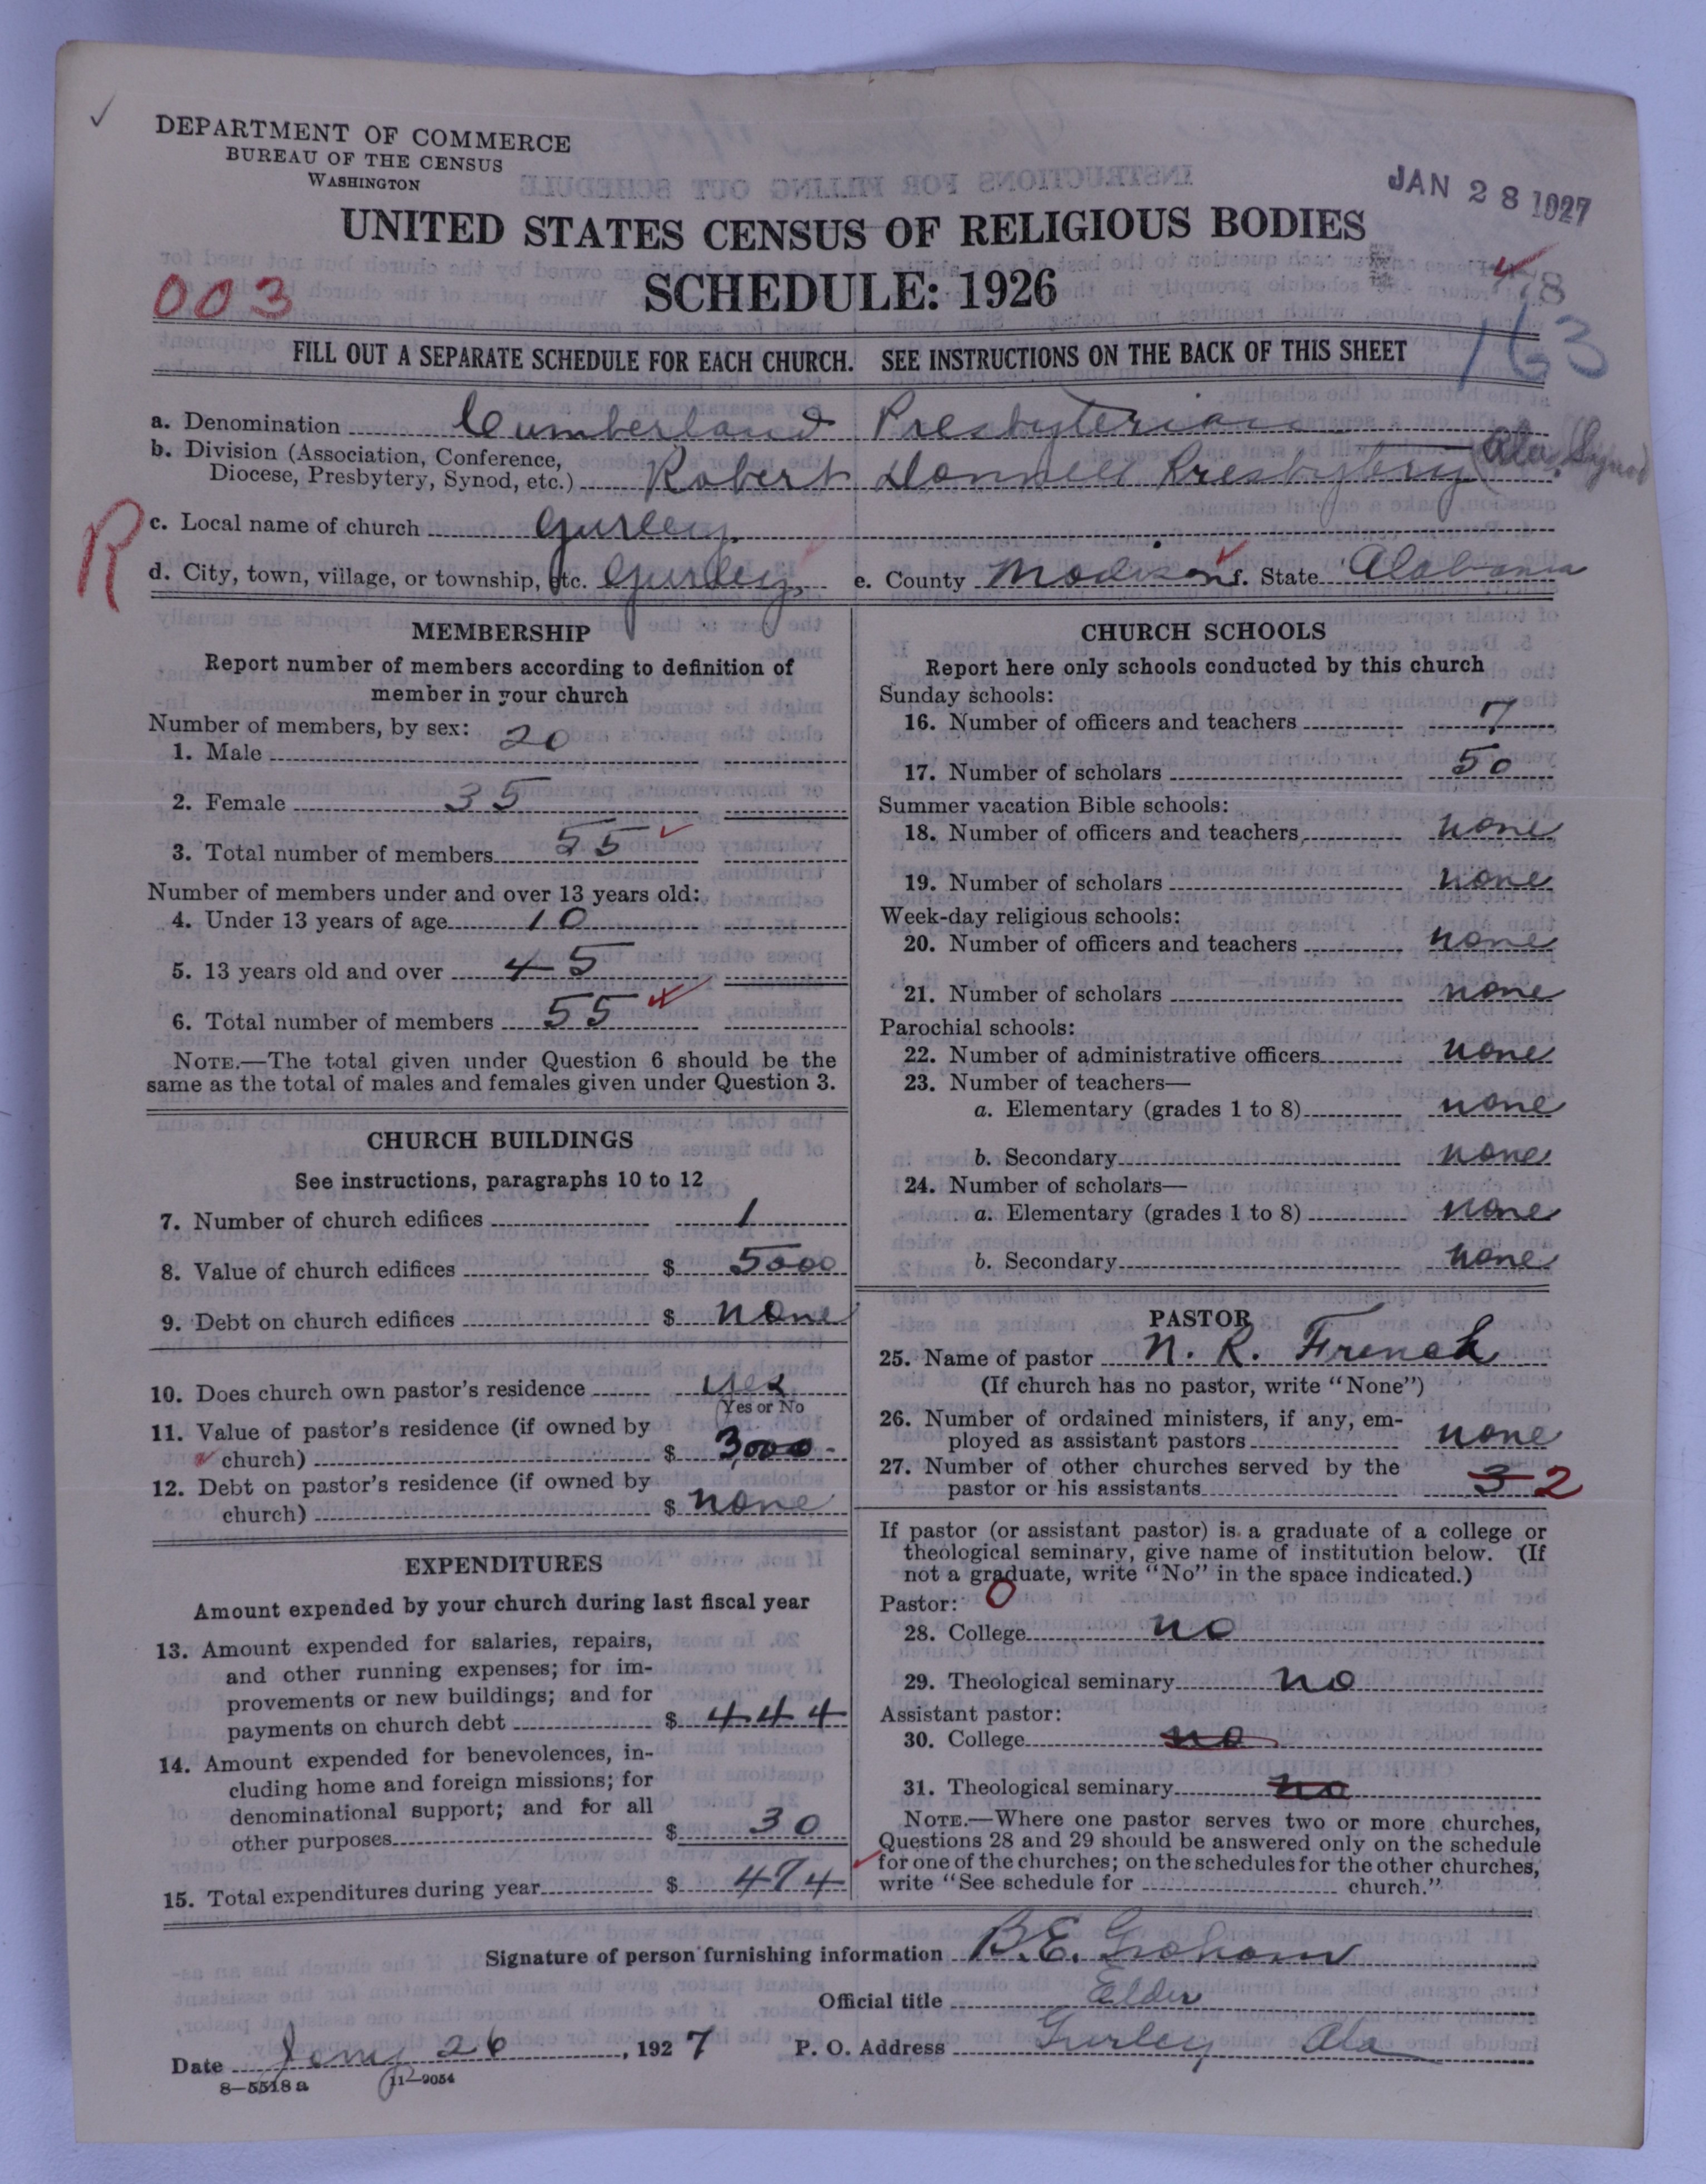 ✓
DEPARTMENT OF COMMERCE
BUREAU OF THE CENSUS
WASHINGTON
JAN 28 1927
UNITED STATES CENSUS OF RELIGIOUS BODIES
SCHEDULE: 1926
003
478
163
FILL OUT A SEPARATE SCHEDULE FOR EACH CHURCH. SEE INSTRUCTIONS ON THE BACK OF THIS SHEET
a. Denomination Cumberland Presbyterian
b. Division (Association, Conference,
Diocese, Presbytery, Synod, etc.) Robert Donnell Presbytery (Ala. Synod
R
c. Local name of church Gurley
d. City, town, village, or township, etc. Gurley, e. County Madison f. State Alabama
MEMBERSHIP
Report number of members according to definition of
member in your church
Number of members, by sex:
1. Male 20
2. Female 35
3. Total number of members 55 ✓
Number of members under and over 13 years old:
4. Under 13 years of age 10
5. 13 years old and over 45
6. Total number of members 55
NOTE.—The total given under Question 6 should be the
same as the total of males and females given under Question 3.
CHURCH BUILDINGS
See instructions, paragraphs 10 to 12
7. Number of church edifices 1
8. Value of church edifices $ 5000
9. Debt on church edifices $ none
10. Does church own pastor's residence yes
(Yes or No
11. Value of pastor's residence (if owned by
church) $ 3,000-
12. Debt on pastor's residence (if owned by
church) $ none
EXPENDITURES
Amount expended by your church during last fiscal year
13. Amount expended for salaries, repairs,
and other running expenses; for im-
provements or new buildings; and for
payments on church debt $ 444
14. Amount expended for benevolences, in-
cluding home and foreign missions; for
denominational support; and for all
other purposes $ 30
15. Total expenditures during year $ 474
CHURCH SCHOOLS
Report here only schools conducted by this church
Sunday schools:
16. Number of officers and teachers 7
17. Number of scholars 50
Summer vacation Bible schools:
18. Number of officers and teachers none
19. Number of scholars none
Week-day religious schools:
20. Number of officers and teachers none
21. Number of scholars none
Parochial schools:
22. Number of administrative officers none
23. Number of teachers—
a. Elementary (grades 1 to 8) none
b. Secondary none
24. Number of scholars—
a. Elementary (grades 1 to 8) none
b. Secondary none
PASTOR
25. Name of pastor N. R. French
(If church has no pastor, write "None")
26. Number of ordained ministers, if any, em-
ployed as assistant pastors none
27. Number of other churches served by the
pastor or his assistants 3 2
If pastor (or assistant pastor) is a graduate of a college or
theological seminary, give name of institution below. (If
not a graduate, write "No" in the space indicated.)
Pastor: 0
28. College no
29. Theological seminary no
Assistant pastor:
30. College no
31. Theological seminary no
NOTE.—Where one pastor serves two or more churches,
Questions 28 and 29 should be answered only on the schedule
for one of the churches; on the schedules for the other churches,
write "See schedule for church."
Signature of person furnishing information B.E. Graham
Official title Elder
Date Jany 26, 1927 P. O. Address Gurley Ala
8—5518 a 11—9054